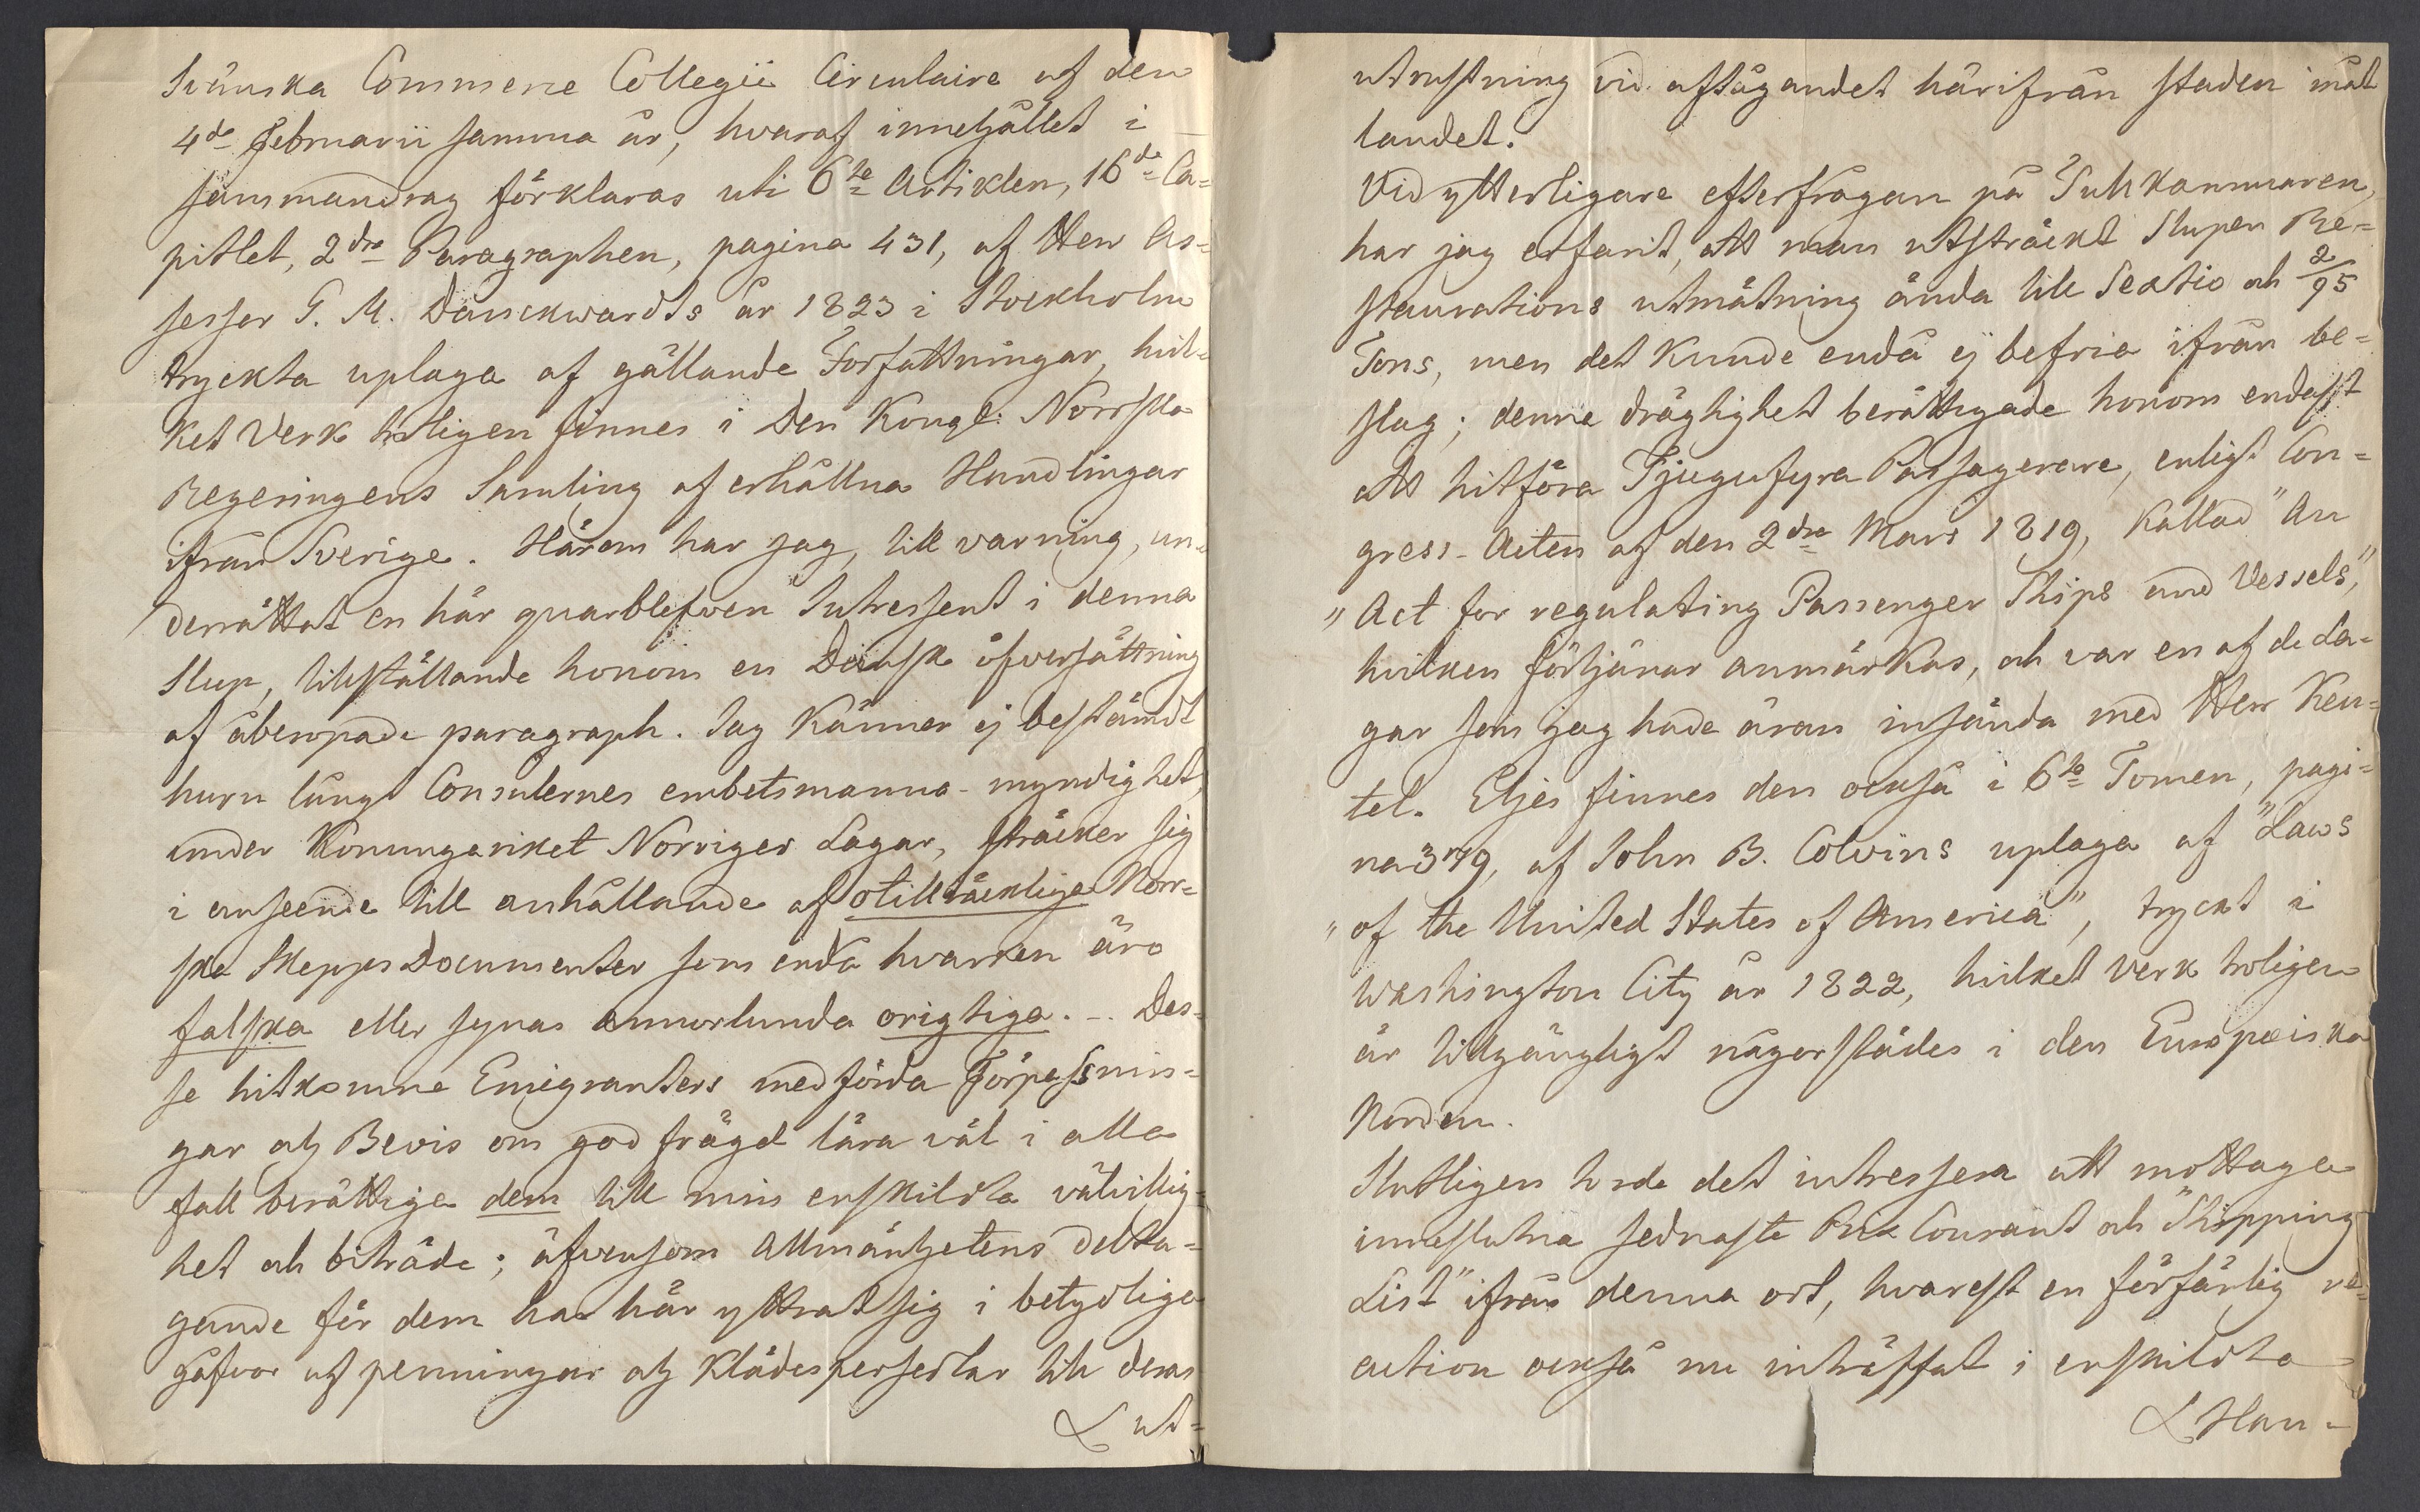 Svänska Commerce Collegii Circulaire af den
4de Februarii samma år, hvaraf innehållet i
sammandrag förklaras uti 6te Artiklen, 16de Ca=
pitlet, 2dra Paragraphen, pagina 431, af Herr As=
sessor G. M. Danckwardts år 1823 i Stockholm
tryckta uplaga af gällande Författningar, hvil-
ket Verk troligen finnes i Den Kongl: Norrska
Regeringens Samling af erhållna Handlingar
ifrån Sverige. Härom har jag, till varning, un-
derrättat en här quarblefwen Intressent i denna
Slup, tillställande honom en Dansk öfversättning
af åberopade paragraph. Jag känner ej bestämdt
huru långt Consulernes embetsmanna-myndighet,
under Konungariket Norriges Lagar, sträcker sig
i anseende till anhållande af otillräcklige Norr=
ska Skepps Documenter som enda hvarken äro
falska eller synas annorlunda origtiga. -- Des=
se hitkomne Emigranters medförda Förpassnin=
gar och Bevis om god frägd lära väl i alla
fall berättiga dem till min enskildta välvillig=
het och biträde; äfvensom Allmänhetens delta=
gande för dem har här yttrat sig i betydliga
gåfvor af penningar och klädespersedlar till deras
ut=
utrustning vid aftågandet härifrån staden inåt
landet.
Vid ytterligare efterfrågan på Tullkammaren,
har jag erfarit, att man utsträckt Slupen Re=
staurations utmätning ända till Sextio och 2/95
Tons, men det kunde endå ej befria ifrån be=
slag; denna drägtighet berättigade honom endast
att hitföra Tjugufyra Passagerare, enligt Con=
gress-Acten af den 2dra Mars 1819, kallad "An
" Act for regulating Passenger Ships and Vessels,"
hvilken förtjänar anmärkas, och var en af de La=
gar som jag hade äran insända med Herr Keu=
tel. Eljes finnes den också i 6te Tomen, pagi=
na 379, af John B. Colvins uplaga af "Laws
" of the United States of America", tryckt i
Washington City år 1822, hvilket Verk troligen
är tillgängligt någorstädes i den Europeiska
Norden.
Slutligen torde det intressera att mottaga
inneslutna sednaste Prix Courant och "Shipping
List" ifrån denna ort, hvarest en förfärlig re=
action också nu inträffat i enskildta
Han=